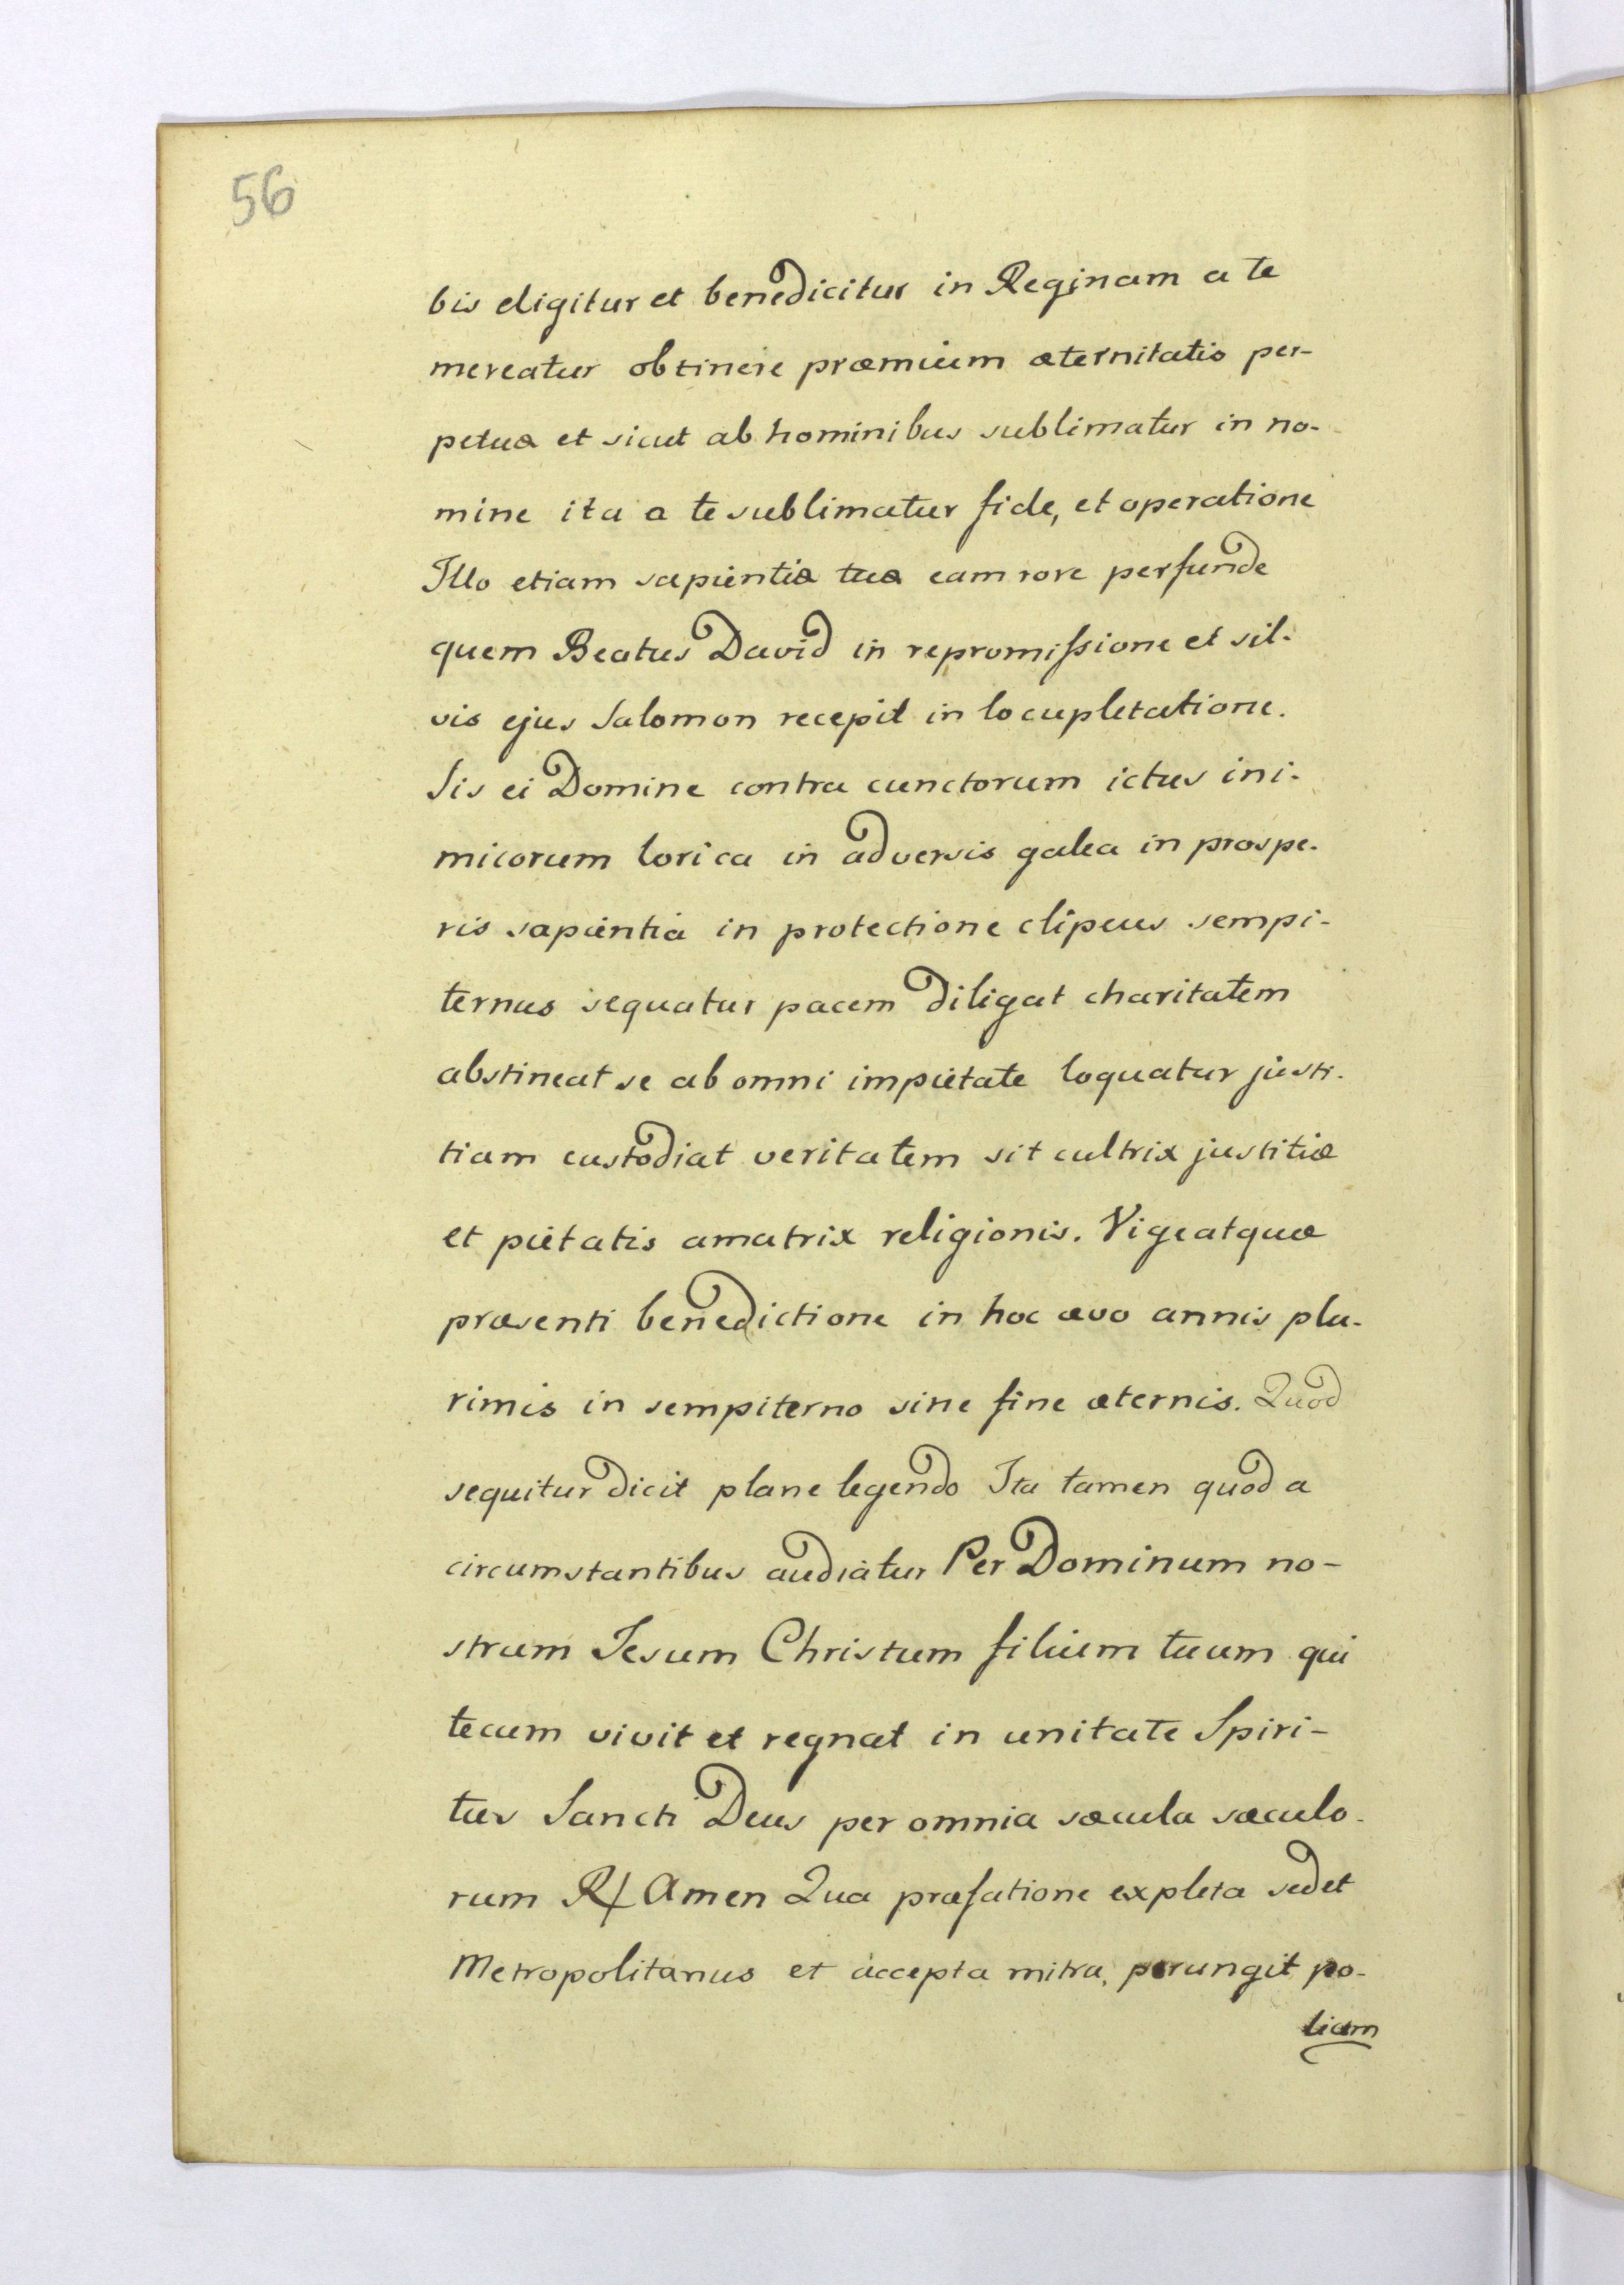 56
bis eligitur et benedicitur in Reginam a te
mereatur obtinere præmium æternitatis per-
petuæ et sicut ab hominibus sublimatur in no-
mine ita a te sublimatur fide, et operatione
Illo etiam sapientiæ tuæ eam rore perfunde
quem Beatus David in repromissione et sil-
vis ejus Salomon recepit in locupletatione.
Sis ei Domine contra cunctorum ictus ini-
micorum lorica in adversis galea in prospe-
ris sapientia in protectione clipeus sempi-
ternus sequatur pacem diligat charitatem
abstineat se ab omni impietate loquatur justi-
tiam custodiat veritatem sit cultrix justitiæ
et pietatis amatrix religionis. Vigeatquæ
præsenti benedictione in hoc ævo annis plu-
rimis in sempiterno sine fine æternis. Quod
sequitur dicit plane legendo Ita tamen quod a
circumstantibus audiatur Per Dominum no-
strum Jesum Christum filium tuum qui
tecum vivit et regnat in unitate Spiri-
tus Sancti Deus per omnia sæcula sæculo-
rum ℟ Amen Qua præfatione expleta sedet
Metropolitanus et accepta mitra, perungit po-
liam